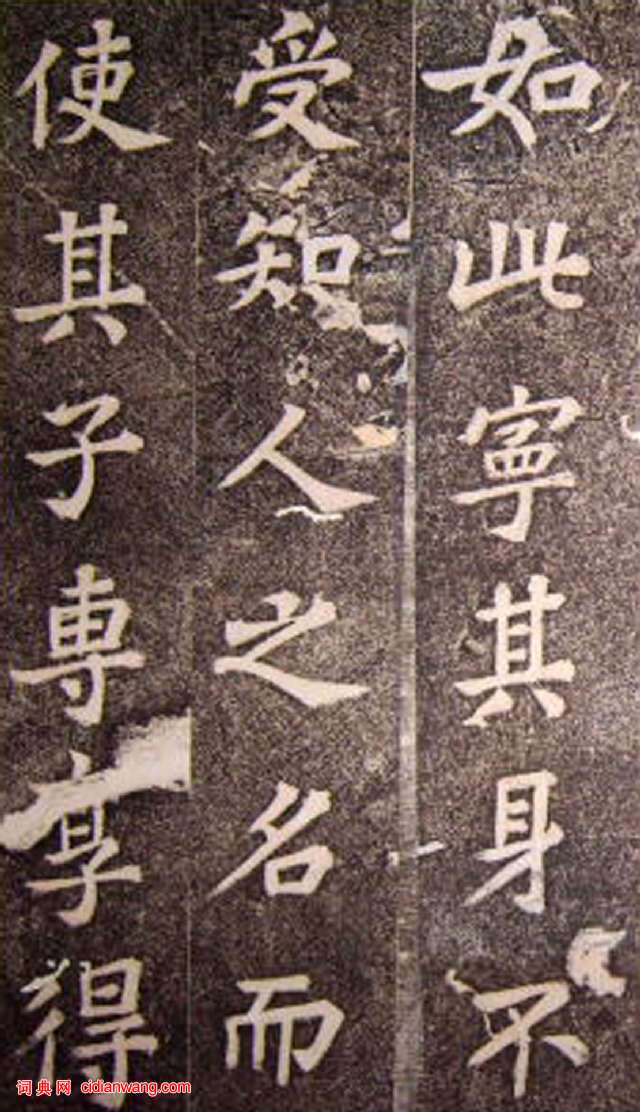 如此寧其身不
受知人之名而
使其子專享得
词典网 cidianwang.com